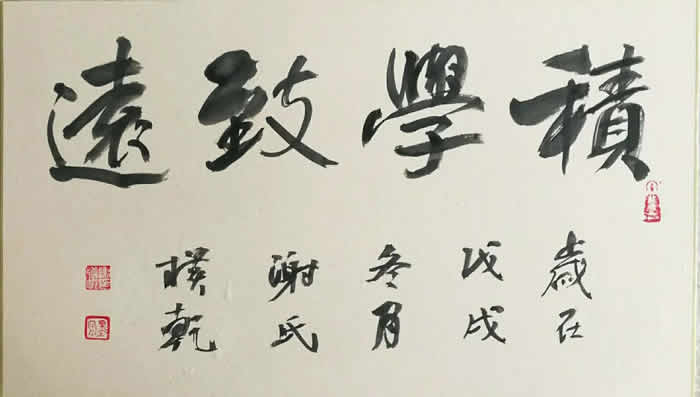 積學致遠
歲在
戊戌
冬月
謝氏
樸乾